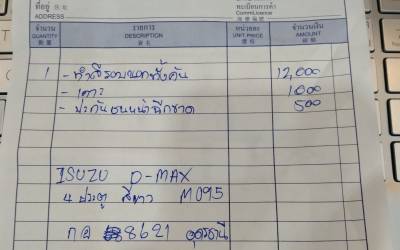 ที่อยู่ 住址
ADDRESS
ทะเบียนการค้า
Comm.Licence
จำนวน
QUANTITY
數量
รายการ
DESCRIPTION
貨名
หน่วยละ
UNIT PRICE
價格
จำนวนเงิน
AMOUNT
銀額
1 - ทำสีรอบนอกทั้งคัน 12,000
- เคาะ 1000
- 500
ISUZU D-MAX
4 ประตู สีขาว M095
กฉ 8621 อุดรธานี